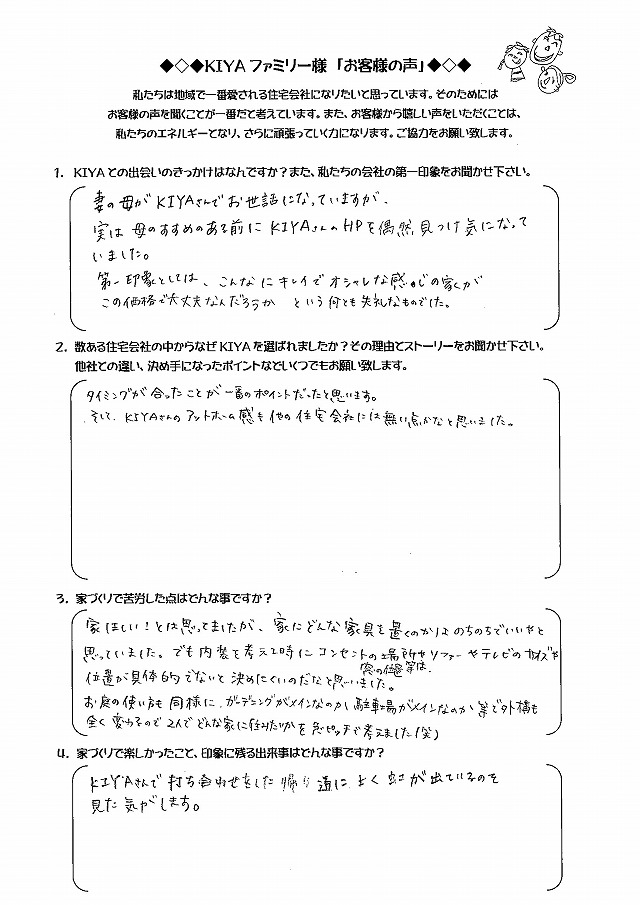 ◆◇◆KIYAファミリー様「お客様の声」◆◇◆
私たちは地域で一番愛される住宅会社になりたいと思っています。そのためには
お客様の声を聞くことが一番だと考えています。また、お客様から嬉しい声をいただくことは、
私たちのエネルギーとなり、さらに頑張っていく力になります。ご協力をお願い致します。
1. KIYAとの出会いのきっかけはなんですか？また、私たちの会社の第一印象をお聞かせ下さい。
妻の母がKIYAさんでお世話になっていますが、
実は母のすすめのある前にKIYAさんのHPを偶然見つけ気になって
いました。
第一印象としては、こんなにキレイでオシャレな感じの家が
この価格で大丈夫なんだろうか という何とも失礼なものでした。
2. 数ある住宅会社の中からなぜKIYAを選ばれましたか？その理由とストーリーをお聞かせ下さい。
他社との違い、決め手になったポイントなどいくつでもお願い致します。
タイミングが合ったことが一番のポイントだったと思います。
そして、KIYAさんのアットホーム感も他の住宅会社には無い点かなと思いました。
3. 家づくりで苦労した点はどんな事ですか？
家ほしい！とは思ってましたが、家にどんな家具を置くのかはのちのちでいいやと
思っていました。でも内装を考える時にコンセントの場所やソファーやテレビのサイズや
窓の位置等は、
位置が具体的でないと決めにくいのだなと思いました。
お庭の使い方も同様に、ガーデニングがメインなのか、駐車場がメインなのか等で外構も
全く変わるので2人でどんな家に住みたいかを急ピッチで考えました(笑)
4. 家づくりで楽しかったこと、印象に残る出来事はどんな事ですか？
KIYAさんで打ち合わせをした帰り道によく虹が出ているのを
見た気がします。